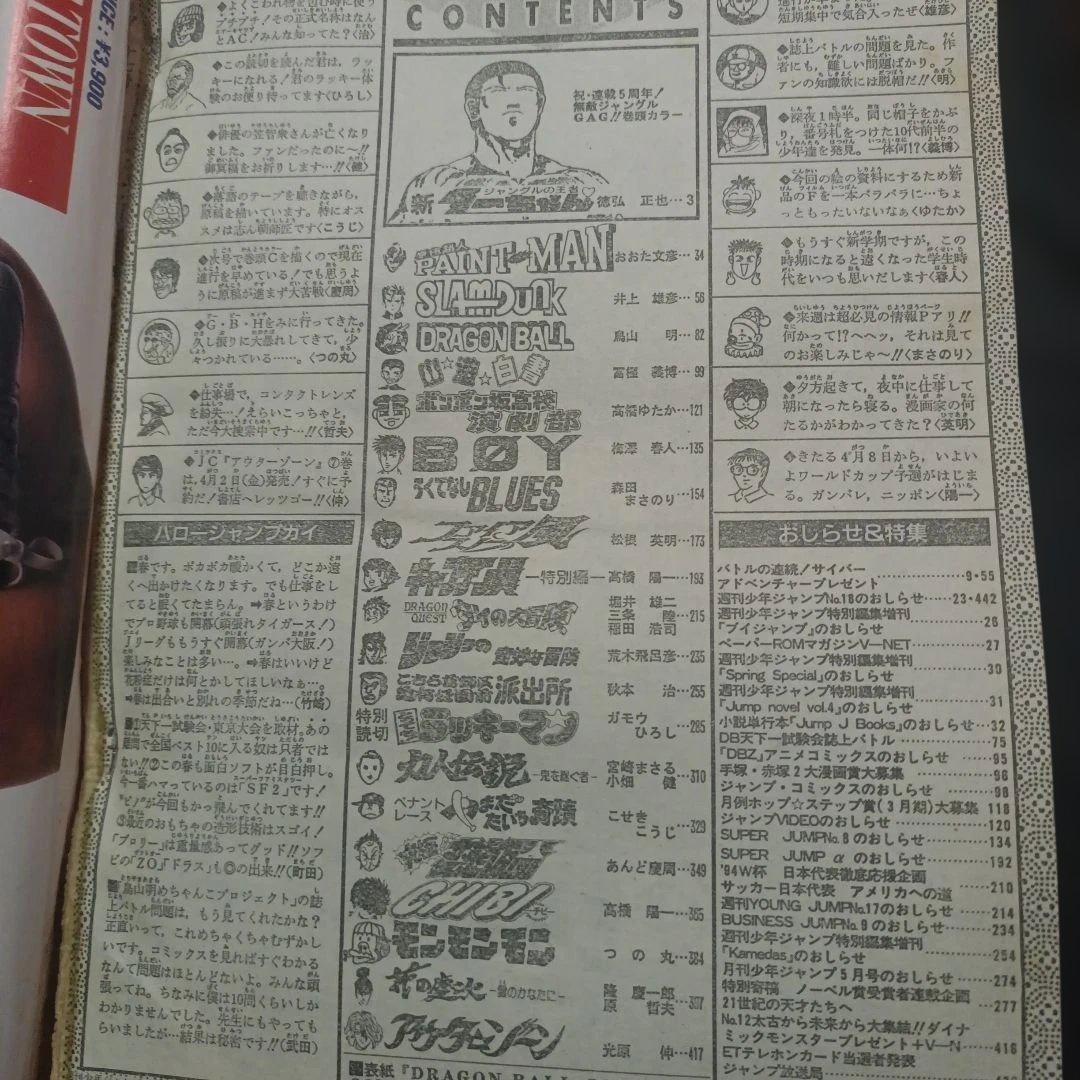 TOWN
CE: ¥3,900
◆よくこわれ物を包む時に使う
プチプチ！その正式名称はなん
とAC！みんな知ってた？〈治〉
◆この読切を読んだ君は、ラッ
キーになれる！君のラッキー体
験のお便り待ってます〈ひろし〉
◆俳優の笠智衆さんが亡くなり
ました。ファンだったのに〜!!
御冥福をお祈りします…!!〈健〉
◆落語のテープを聴きながら、
原稿を描いています。特にオス
スメは志ん朝師匠です〈こうじ〉
◆次号で巻頭Cを描くので現在
進行を早めている！でも思うよ
うに原稿が進まず大苦戦〈慶周〉
◆G・B・Hをみに行ってきた。
久し振りに大暴れしてきて，少
々つかれている……。〈つの丸〉
◆仕事場で，コンタクトレンズ
を紛失…！えらいこっちゃと，
ただ今大捜索中です…!!〈哲夫〉
◆JC『アウターゾーン』⑦巻
は，4月2日(金)発売！すぐに予
約だ！書店へレッツゴー!!〈伸〉
ハロージャンプカイ
春です。ポカポカ暖かくて，どこか遠
くへ出かけたくなります。でも仕事をし
てると眠くてたまらん。➡春というわけ
でプロ野球も開幕(頑張れタイガース！)
Jリーグももうすぐ開幕(ガンバ大阪！)
楽しみなことは多い…。➡春はいいけど
花粉症だけは何とかしてほしいなぁ…。
➡春は出合いと別れの季節だね…(竹崎)
①天下一試験会・東京大会を取材。あの
難問で全国ベスト10に入る奴は只者では
ない!!②この春も面白ソフトが目白押し。
今一番ハマっているのは「SF2」です！
"ピノ"が今回もかっ飛んでくれてます!!
③最近のおもちゃの造形技術はスゴイ！
「ブロリー」は重量感あってグッド!!ソフ
ビの「ZO」「ドラス」も◎の出来!!(町田)
「鳥山明めちゃんこプロジェクト」の誌
上バトル問題は，もう見てくれたかな？
正直いって，これめちゃくちゃむずかし
いです。コミックスを見ればすぐわかる
なんて問題はほとんどないよ。みんな頑
張ってね。ちなみに僕は10問くらいしか
わかりませんでした。先生にもやっても
らいましたが…結果は秘密です!!(武田)
CONTENTS
祝・連載5周年！
無敵ジャングル
GAG!!巻頭カラー
ジャングルの王者
新ターちゃん♡ 徳弘 正也…3
PAINT MAN おおた文彦…34
SLAM DUNK 井上 雄彦…56
DRAGON BALL 鳥山 明…82
幽☆遊☆白書 冨樫 義博…99
ボンボン坂高校
演劇部 高橋ゆたか…121
BØY 梅澤 春人…135
ろくでなしBLUES 森田
まさのり…154
松根 英明…173
キャプテン翼 ―特別編― 高橋 陽一…193
DRAGON
QUEST ダイの大冒険 堀井 雄二
三条 陸…215
稲田 浩司
ジョジョの
奇妙な冒険 荒木飛呂彦…235
こちら葛飾区
亀有公園前 派出所 秋本 治…255
特別
読切 ラッキーマン ガモウ
ひろし…285
力人伝説 ―鬼を継ぐ者― 宮崎まさる
小畑 健…310
ペナント
レース やまだたいちの奇蹟 こせき
こうじ…329
あんど慶周…349
CHIBI 高橋 陽一…365
モンモンモン つの丸…384
花の慶次 ―雲のかなたに― 隆 慶一郎
原 哲夫…397
アウターゾーン 光原 伸…417
表紙『DRAGON BALL
短期集中で気合入ったぜ〈雄彦〉
◆誌上バトルの問題を見た。作
者にも，難しい問題ばかり。フ
ァンの知識欲には脱帽だ!!〈明〉
◆深夜1時半。同じ帽子をかぶ
り，番号札をつけた10代前半の
少年達を発見。一体何!?〈義博〉
◆今回の絵の資料にするため新
品のFを一本バラバラに…ちょ
っともったいないなぁ〈ゆたか〉
◆もうすぐ新学期ですが，この
時期になると遠くなった学生時
代をいつも思いだします〈春人〉
◆来週は超必見の情報Pアリ!!
何かって!?ヘヘッ，それは見て
のお楽しみじゃ〜!!〈まさのり〉
◆夕方起きて，夜中に仕事して
朝になったら寝る。漫画家の何
たるかがわかってきた？〈英明〉
◆きたる4月8日から，いよい
よワールドカップ予選がはじま
る。ガンバレ，ニッポン〈陽一〉
おしらせ&特集
バトルの連続！サイバー
アドベンチャープレゼント……9・55
週刊少年ジャンプNo.18のおしらせ……23・442
週刊少年ジャンプ特別編集増刊
「ブイジャンプ」のおしらせ……26
ペーパーROMマガジンV―NET……27
週刊少年ジャンプ特別編集増刊
「Spring Special」のおしらせ……30
週刊少年ジャンプ特別編集増刊
「Jump novel vol.4」のおしらせ……31
小説単行本「Jump J Books」のおしらせ……32
DB天下一試験会誌上バトル……75
「DBZ」アニメコミックスのおしらせ……95
手塚・赤塚2大漫画賞大募集……96
ジャンプ・コミックスのおしらせ……98
月例ホップ☆ステップ賞(3月期)大募集……118
ジャンプVIDEOのおしらせ……120
SUPER JUMP No.8のおしらせ……134
SUPER JUMP αのおしらせ……192
'94W杯 日本代表徹底応援企画
サッカー日本代表 アメリカへの道……210
週刊YOUNG JUMP No.17のおしらせ……214
BUSINESS JUMP No.9のおしらせ……234
週刊少年ジャンプ特別編集増刊
「Kamedas」のおしらせ……254
月刊少年ジャンプ5月号のおしらせ……274
特別寄稿 ノーベル賞受賞者連載企画
21世紀の天才たちへ……277
No.12太古から未来から大集結!!ダイナ
ミックモンスタープレゼント+V―N……416
ETテレホンカード当選者発表
ジャンプ放送局